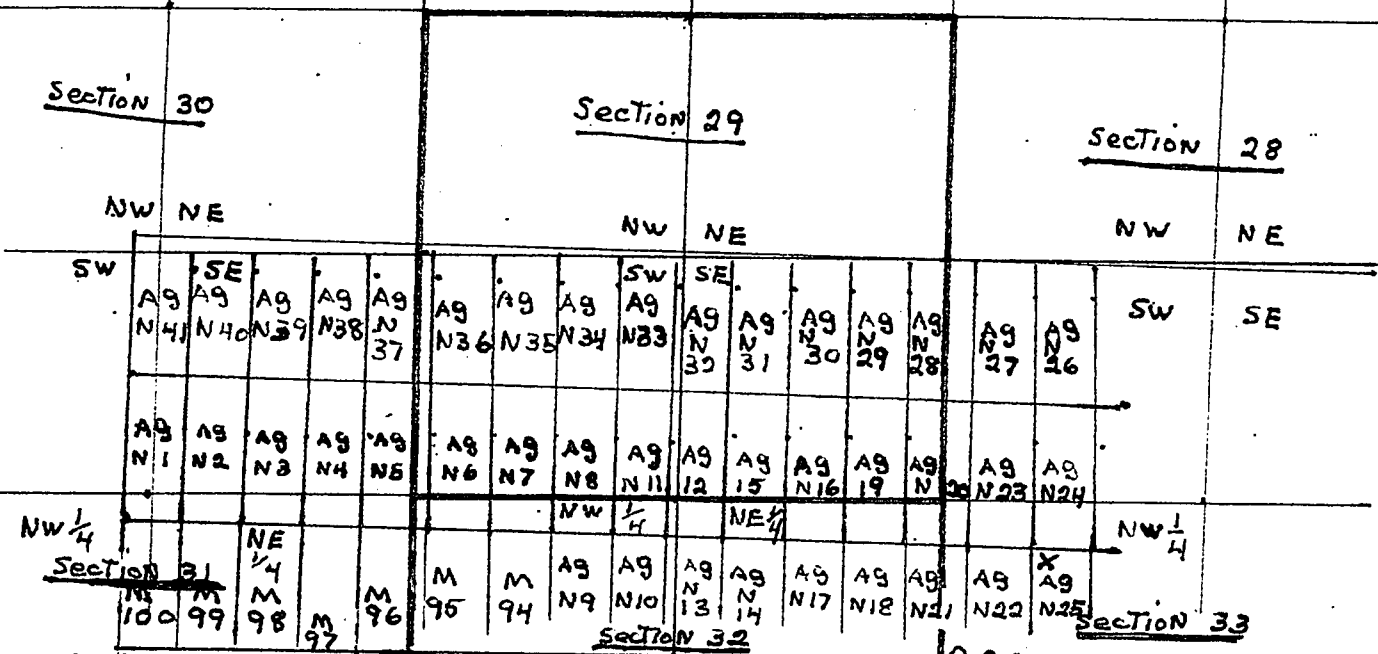 Section 30
Section 29
Section 28
NW NE
NW NE
NW NE
SW SE
SW SE
SW SE
Ag N41
Ag N40
Ag N39
Ag N38
Ag N 37
Ag N36
Ag N35
Ag N34
Ag N33
Ag N 32
Ag N 31
Ag N 30
Ag N 29
Ag N 28
Ag N 27
Ag N 26
Ag N1
Ag N2
Ag N3
Ag N4
Ag N5
Ag N6
Ag N7
Ag N8
Ag N11
Ag 12
Ag 15
Ag N16
Ag 19
Ag N 20
Ag N23
Ag N24
NW 1/4
NE 1/4
NW 1/4
NE 1/4
NW 1/4
Section 31
M 100
M 99
M 98
M 97
M 96
M 95
M 94
Ag N9
Ag N10
Ag N 13
Ag N 14
Ag N17
Ag N18
Ag N21
Ag N22
X Ag N25
Section 32
Section 33